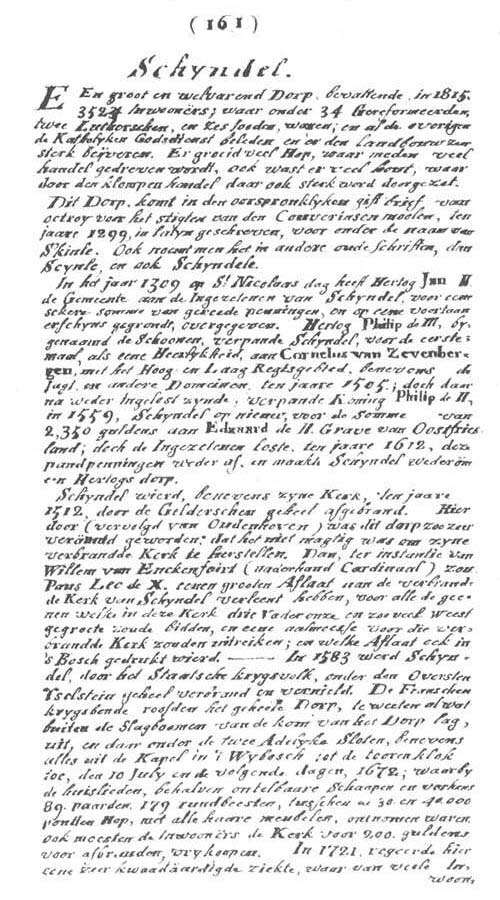 (161)
Schyndel.
EEn groot en welvarend Dorp, bevattende, in 1815.
3523 Inwooners; waar onder 34 Gereformeerden,
twee Lutherschen, en zes Jooden, waren; en al de overigen
de Katholyken Godsdienst beleden en er den Landbouw zeer
sterk beijveren. Er groeid veel Hop, waar meden veel
handel gedreven wordt, ook wast er veel hout, waar
door den klompen handel daar ook sterk word doorgezet.
Dit Dorp, komt in den oorspronklyken gift brief, van
octroy voor het stigten van den Couverinsen moolen, ten
jaare 1299, in latyn geschreven, voor onder de naam van
Skinle. Ook noemt men het in andere oude Schriften, dan
Scynle, en ook Schyndele.
In het jaar 1309 op St. Nicolaas dag heeft Hertog Jan II
de Gemeente aan de Ingezetenen van Schyndel, voor eene
sekere somme van gereede penningen, en op eene voortaan
erfchyns gegrondt, overgegeven. Hertog Philip de III, by,
genaamd de Schoonen, verpande Schyndel, voor de eerste,
maal, als eene Heerlykheid, aan Cornelius van Zevenber-
gen, met het Hoog en Laag Regtsgebied, benevens de
Jagt en andere Domeinen, ten jaare 1505; doch daar
na weder Ingelost zynde, verpande Koning Philip de II,
in 1559, Schyndel op nieuw, voor de Somme van
2,350 guldens aan Eduaard de II. Grave van Oostfries
land; doch de Ingezetenen loste, ten jaare 1612, deze
pandpenningen weder af, en maakte Schyndel wederom
een Hertogs dorp.
Schyndel wierd, benevens zyne Kerk, ten jaare
1512, door de Gelderschen geheel afgebrand. Hier
door (vervolgd van Oudenhoven) was dit dorp zoo zeer
verarmd geworden; dat het niet magtig was om zyne
verbrandde Kerk te herstellen. Dan, ter instantie van
Willem van Enckenfoirt (naderhand Cardinaal) zou
Paus Leo de X, eenen grooten Aflaat aan de verbrand-
de Kerk van Schyndel verleent hebben, voor alle de gee-
nen welke in deze Kerk drie Vaderonze en zoo veel weest
gegroete zoude bidden, en eene aalmoesse voor die ver-
brandde Kerk zouden uitreiken; en welke Aflaat ook in
's Bosch gedrukt wierd. ——— In 1583 werd Schyn-
del, door het Staatsche krygsvolk, onder den Oversten
Yselstein geheel verbrand en vernield. De Franschen
krygsbende roofden het geheele Dorp, te weeten al wat
buiten de Slagboomen van de kom van het Dorp lag,
uit, en daar onder de twee Adelyke Sloten, benevens
alles uit de Kapel in 't Wybosch tot de tooren klok
toe, den 10 July en de volgende dagen, 1672; waarby
de huislieden, behalven ontelbaare Schaapen en varkens
89. paarden, 179 rundbeesten, tusschen de 30. en 40.000
ponden Hop, met alle haare meubelen, ontnomen waren,
ook moesten de Inwooners de Kerk voor 200. guldens
voor afbranden, vry koopen. In 1721, regeerde hier
eene zeer kwaadaardigde ziekte, waar van veele In-
woon,